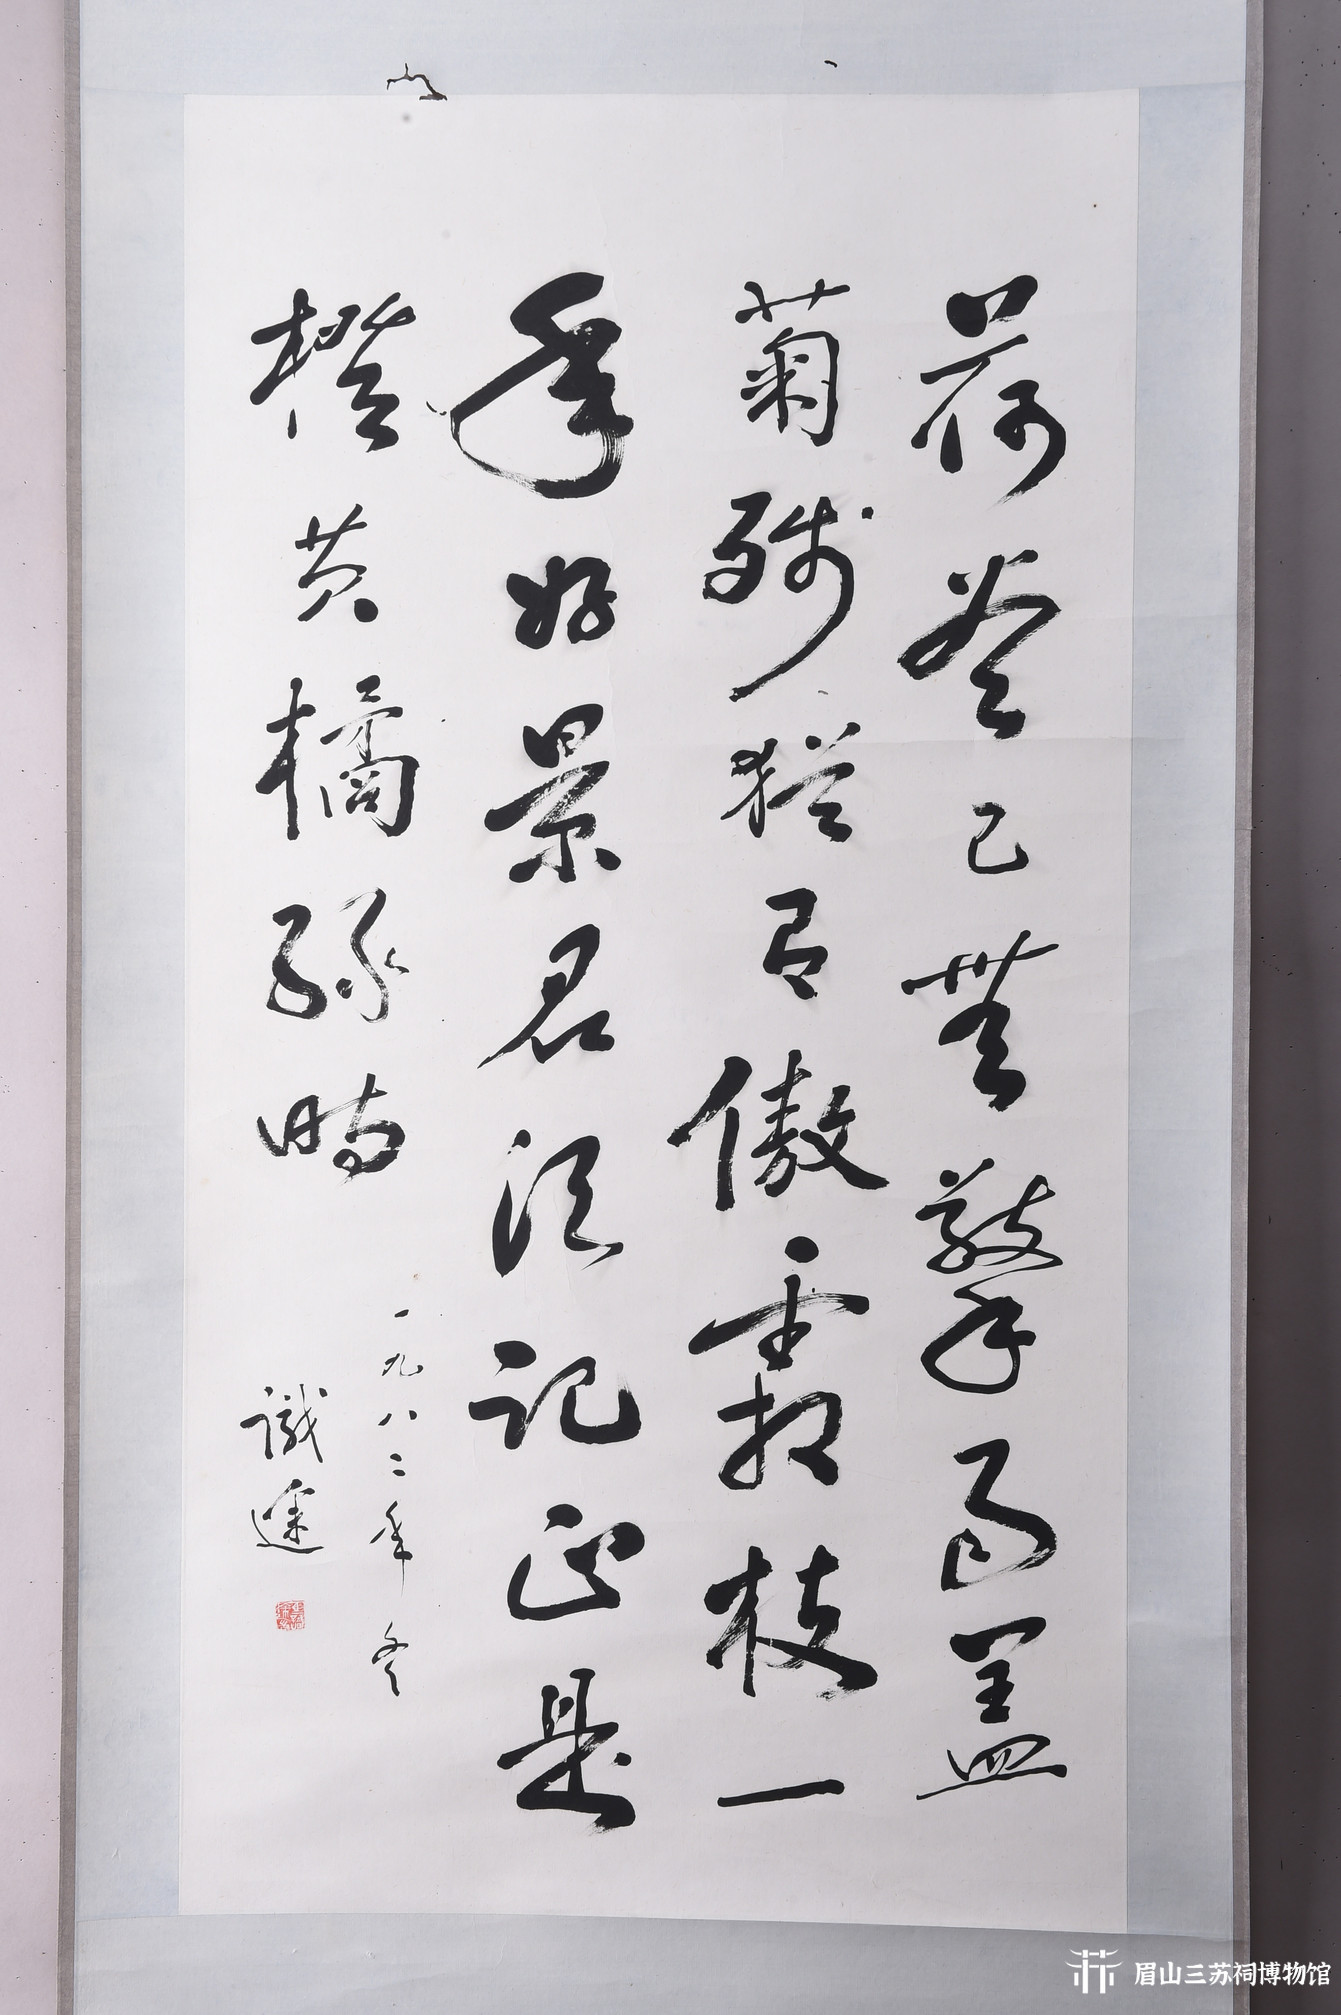 荷尽已无擎雨盖
菊残犹有傲霜枝一
年好景君须记正是
橙黄橘绿时
一九八二年冬
识途
眉山三苏祠博物馆